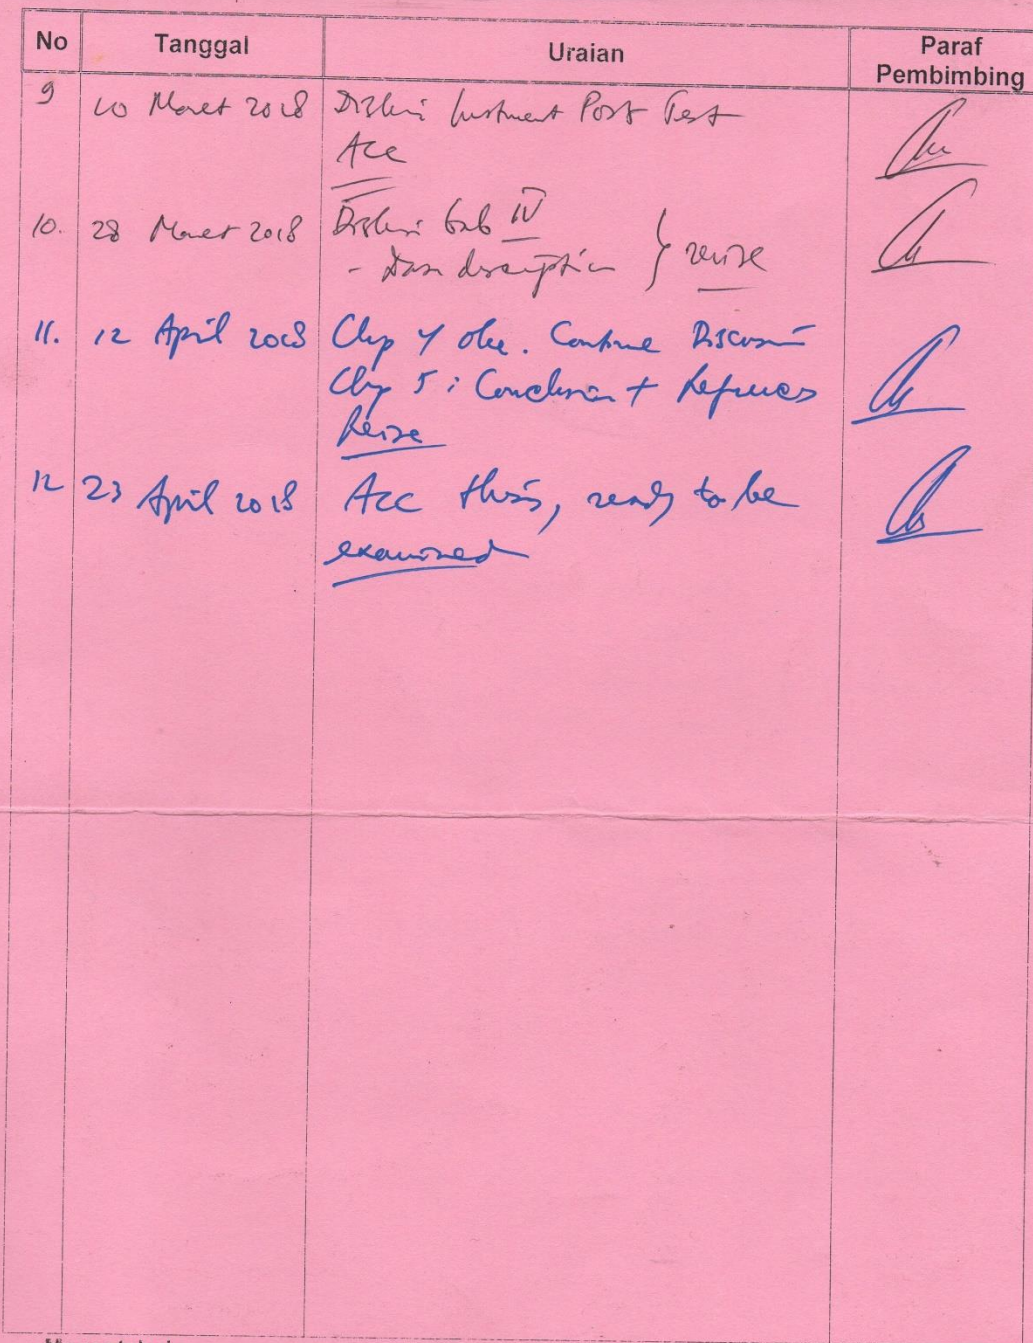 No Tanggal Uraian Paraf Pembimbing
9 10 Maret 2018 Diskusi Instrument Post Test
Acc
10. 28 Maret 2018 Diskusi bab IV
- Data description } revise
11. 12 April 2018 Chap 4 oke. Continue Discussion
Chap 5 : Conclusion + References
Revise
12 23 April 2018 Acc thesis, ready to be
examined